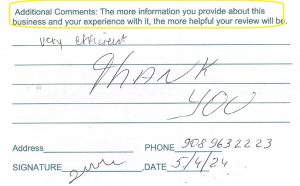 Additional Comments: The more information you provide about this
business and your experience with it, the more helpful your review will be.
very efficient
THANK
YOU
Address PHONE 9089632223
SIGNATURE DATE 5/4/24